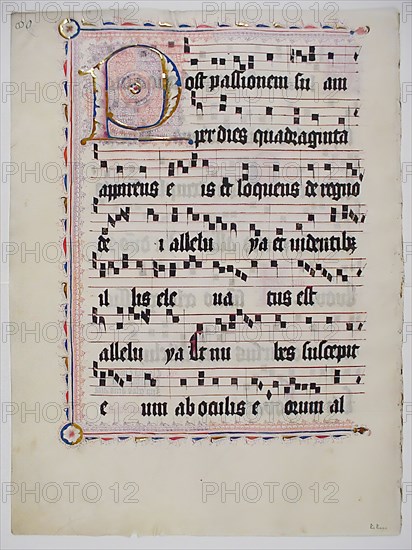 Post passionem su am
per dies quadraginta
apparens e is et loquens de regno
de i allelu ya et videntibȝ
il lis ele ua tus est
allelu ya Et nu bes suscepit
e um ab oculis e orum al